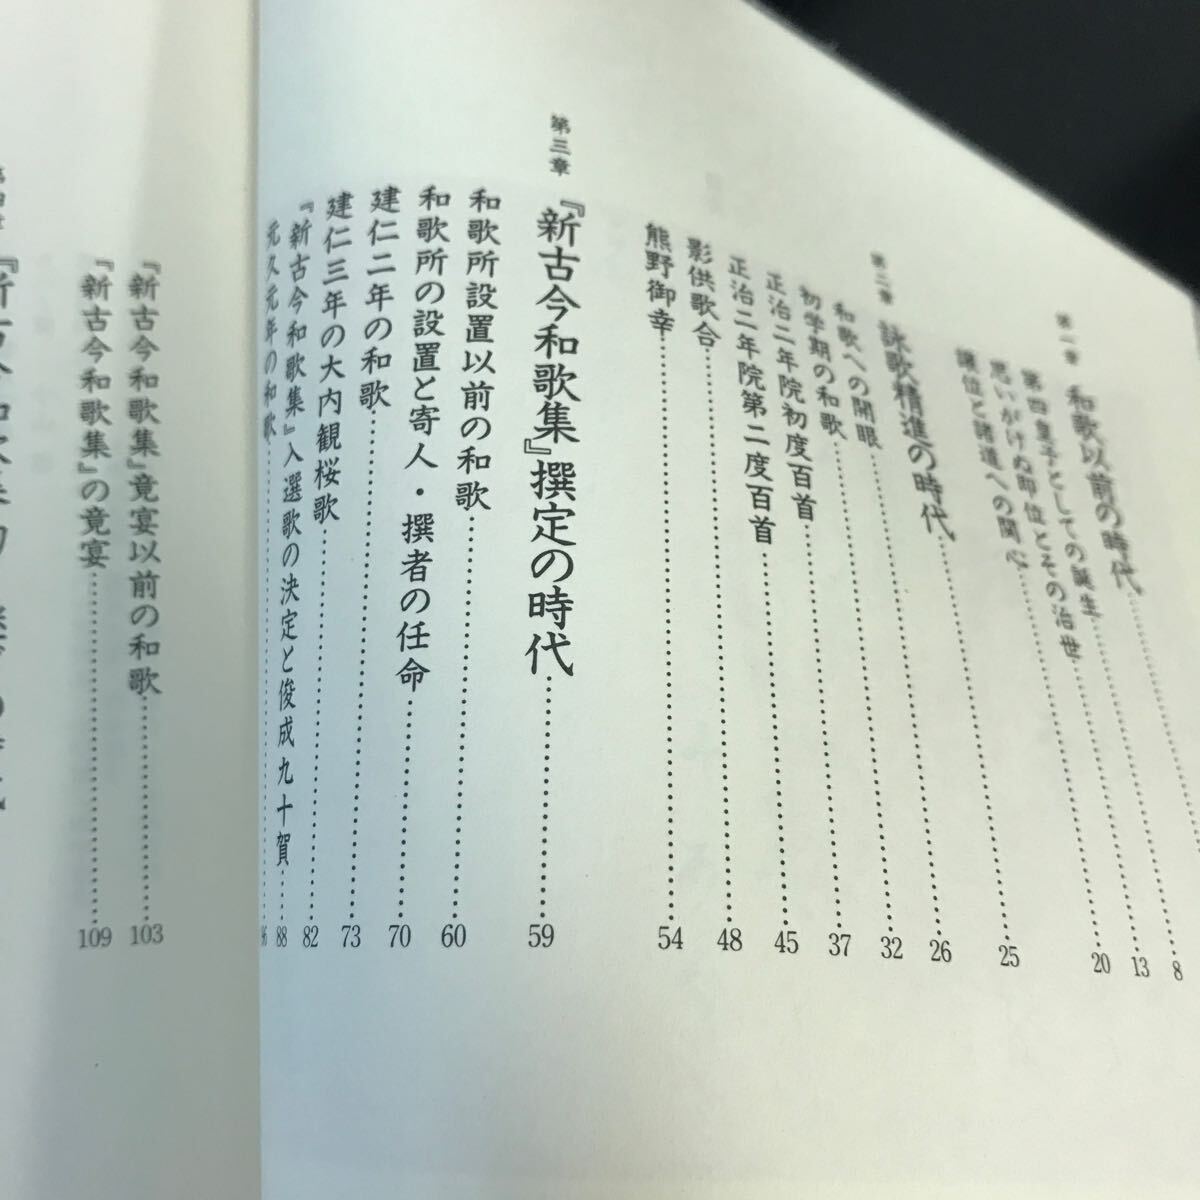 第一章 和歌以前の時代
第四皇子としての誕生 8
思いがけぬ即位とその治世 13
譲位と諸道への関心 20
第二章 詠歌精進の時代 25
和歌への開眼 26
初学期の和歌 32
正治二年院初度百首 37
正治二年院第二度百首 45
影供歌合 48
熊野御幸 54
第三章 『新古今和歌集』撰定の時代 59
和歌所設置以前の和歌 60
和歌所の設置と寄人・撰者の任命 70
建仁二年の和歌 73
建仁三年の大内観桜歌 82
『新古今和歌集』入選歌の決定と俊成九十賀 88
元久元年の和歌 96
『新古今和歌集』竟宴以前の和歌 103
『新古今和歌集』の竟宴 109